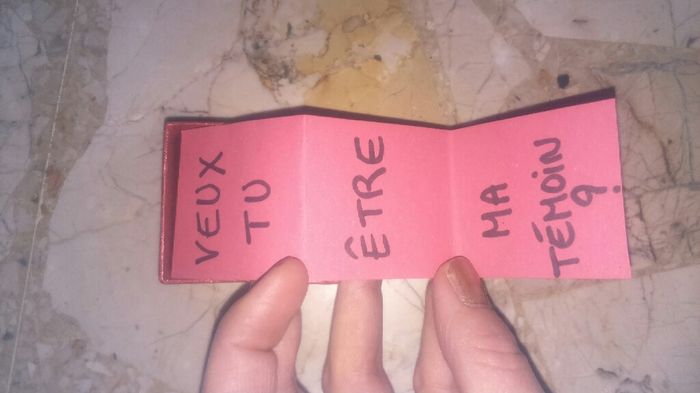 VEUX
TU
ÊTRE
MA
TÉMOIN
?